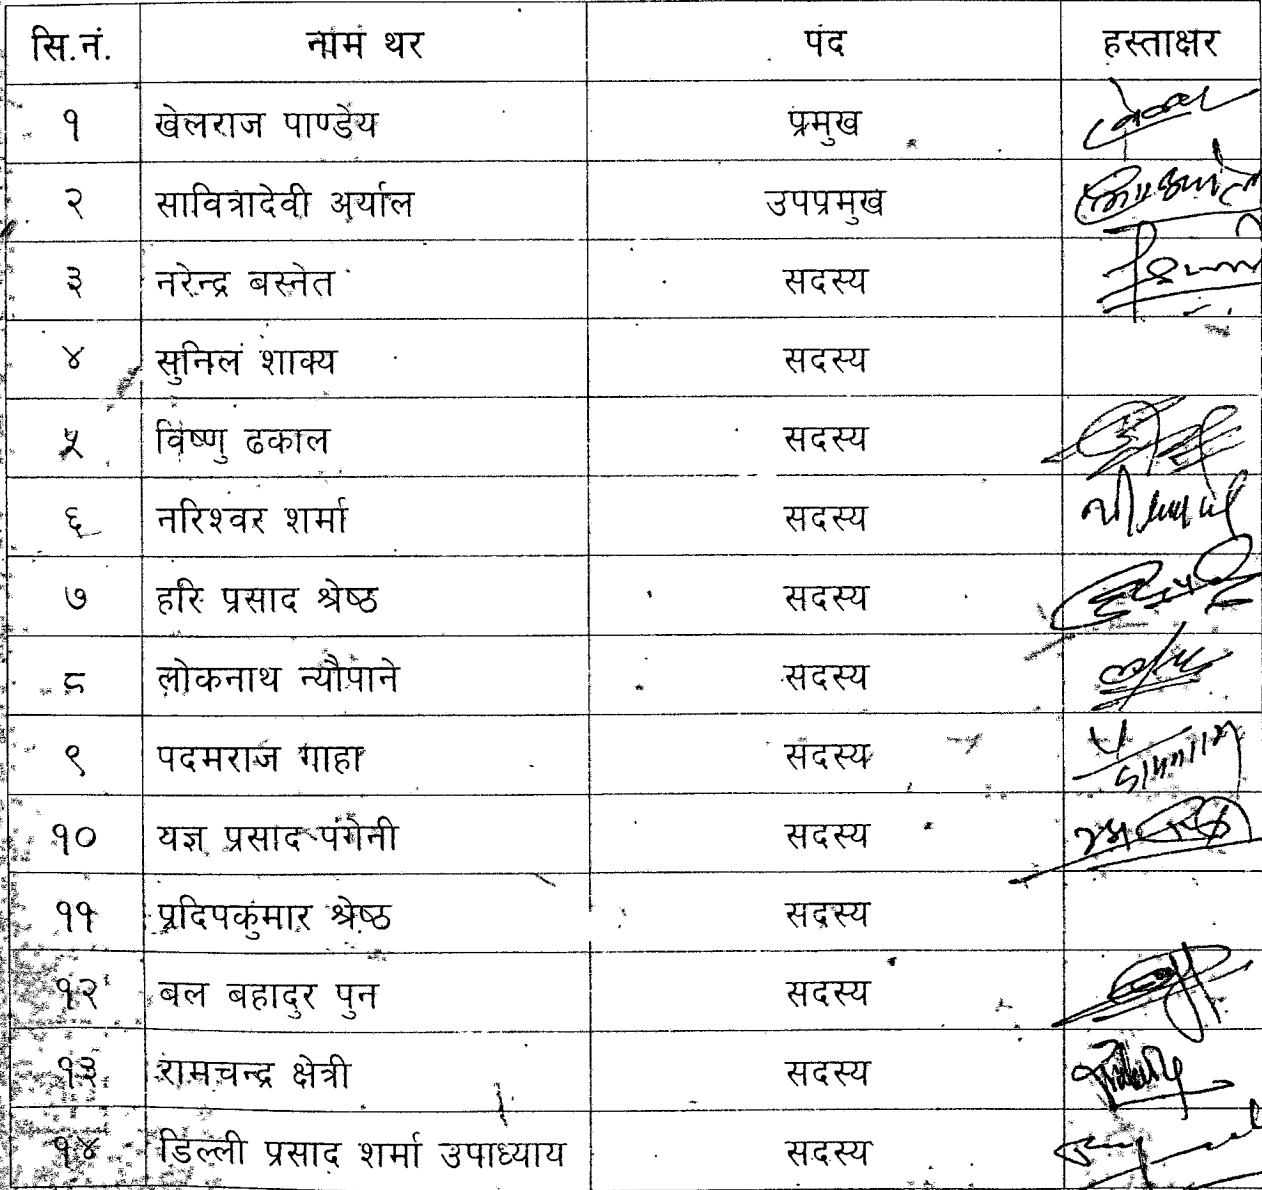 सि.नं. नाम थर पद हस्ताक्षर
१ खेलराज पाण्डेय प्रमुख
२ सावित्रादेवी अर्याल उपप्रमुख
३ नरेन्द्र बस्नेत सदस्य
४ सुनिल शाक्य सदस्य
५ विष्णु ढकाल सदस्य
६ नरिश्वर शर्मा सदस्य
७ हरि प्रसाद श्रेष्ठ सदस्य
८ लोकनाथ न्यौपाने सदस्य
९ पदमराज गाहा सदस्य
१० यज्ञ प्रसाद पंगेनी सदस्य
११ प्रदिपकुमार श्रेष्ठ सदस्य
१२ बल बहादुर पुन सदस्य
१३ रामचन्द्र क्षेत्री सदस्य
१४ डिल्ली प्रसाद शर्मा उपाध्याय सदस्य